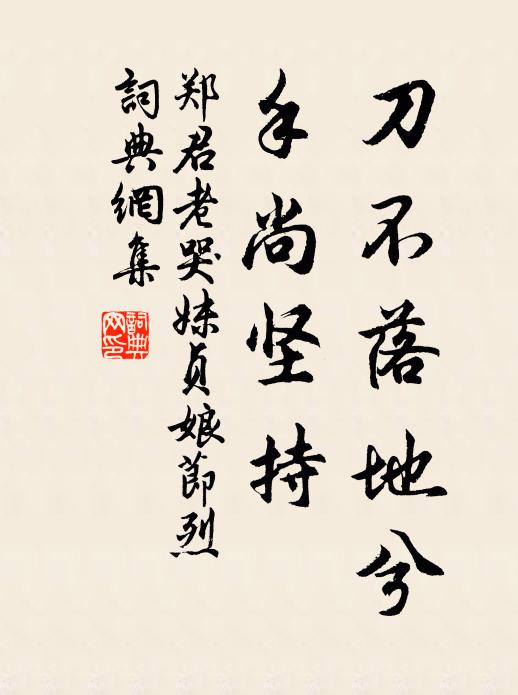 刀不落地兮
手尚坚持
郑君老哭妹贞娘节烈
詞典網集
詞典网印